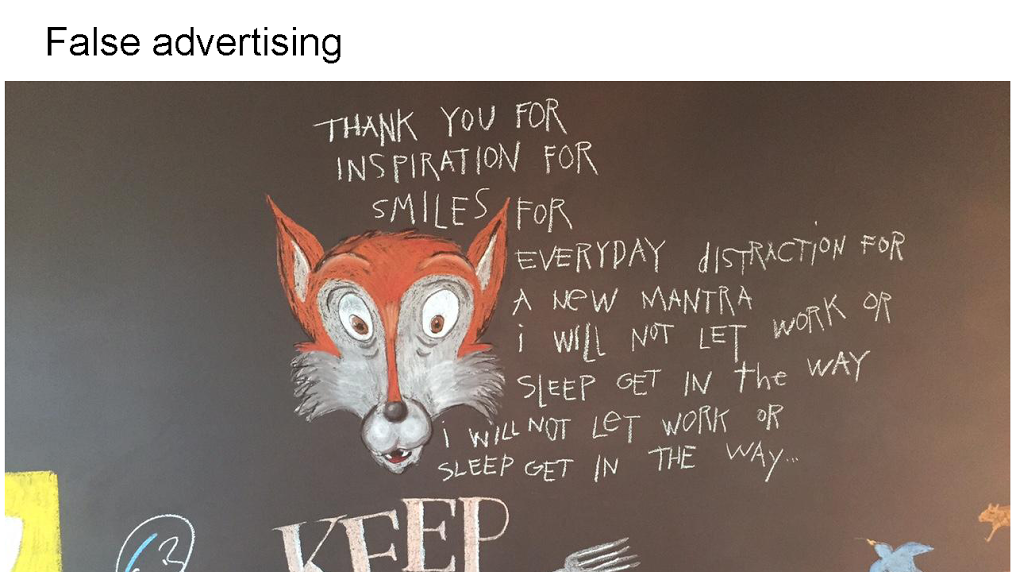 False advertising
THANK YOU FOR
INSPIRATION FOR
SMILES FOR
EVERYDAY dISTRACTiON FOR
A NeW MANTRA
i WILL NOT LET WORK OR
SLEEP GET IN The WAY
i WILL NOT LeT WORK OR
SLEEP GET IN THE WAY...
KEEP